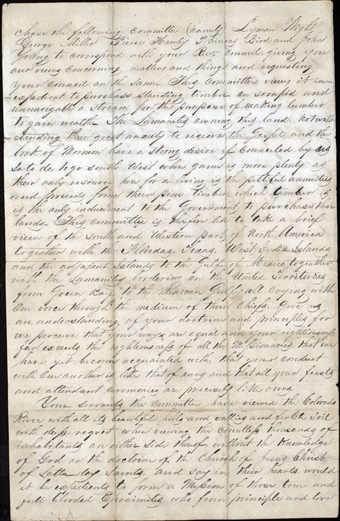 Chose the following committee (namely) Lyman Wight
George Miller Pierce Hawley Phineas Bird and John
Young to correspond with your Rev Council giving you
our views concerning matters and things and requesting
your Council on the Same. This Committee views it in-
expedient to purchase standing timber on scraped and
unnavigable a Stream for the purpose of making lumber
to gain wealth. The Lamanites owning this land notwith-
standing their great anxiety to receive the Gospel and the
book of Mormon have a strong desire if Counciled by us
so to do to go South West where game is more plenty as
their only resource here for a living is the pitiful annuities
and proceeds from their pine timber which timber
is the only inducement to the Government to purchase their
lands. This Committee is therefore led to take a brief
view of the South and Western part of North America
together with the Floridas Texas West India Islands
and the adjacent Islands to the Gulf of Mexico together
with the Lamanites bordering on the United Territories
from Green Bay to the Mexican Gulf all crying with
One voice through the medium of their Chiefs give us
an understanding of your doctrine and principles for
we perceive that your ways are equal and your righteousness
far exceeds the righteousness of all the Missionaries that we
have yet become acquainted with that your conduct
with One another is like that of ours and that all your feasts
and attendant ceremonies are precisely like ours
Your servants the Committee have viewed the Colorado
River with all its beautiful hills and vallies and fertile soil
with deep regret when viewing the Countless thousands of
inhabitants on either side thereof without the knowledge
of God or the doctrine of the Church of Jesus Christ
of Latter day Saints and say in their hearts would
it be expedient to form a Mission of those true and
full blooded Ephraimites who from principle and love